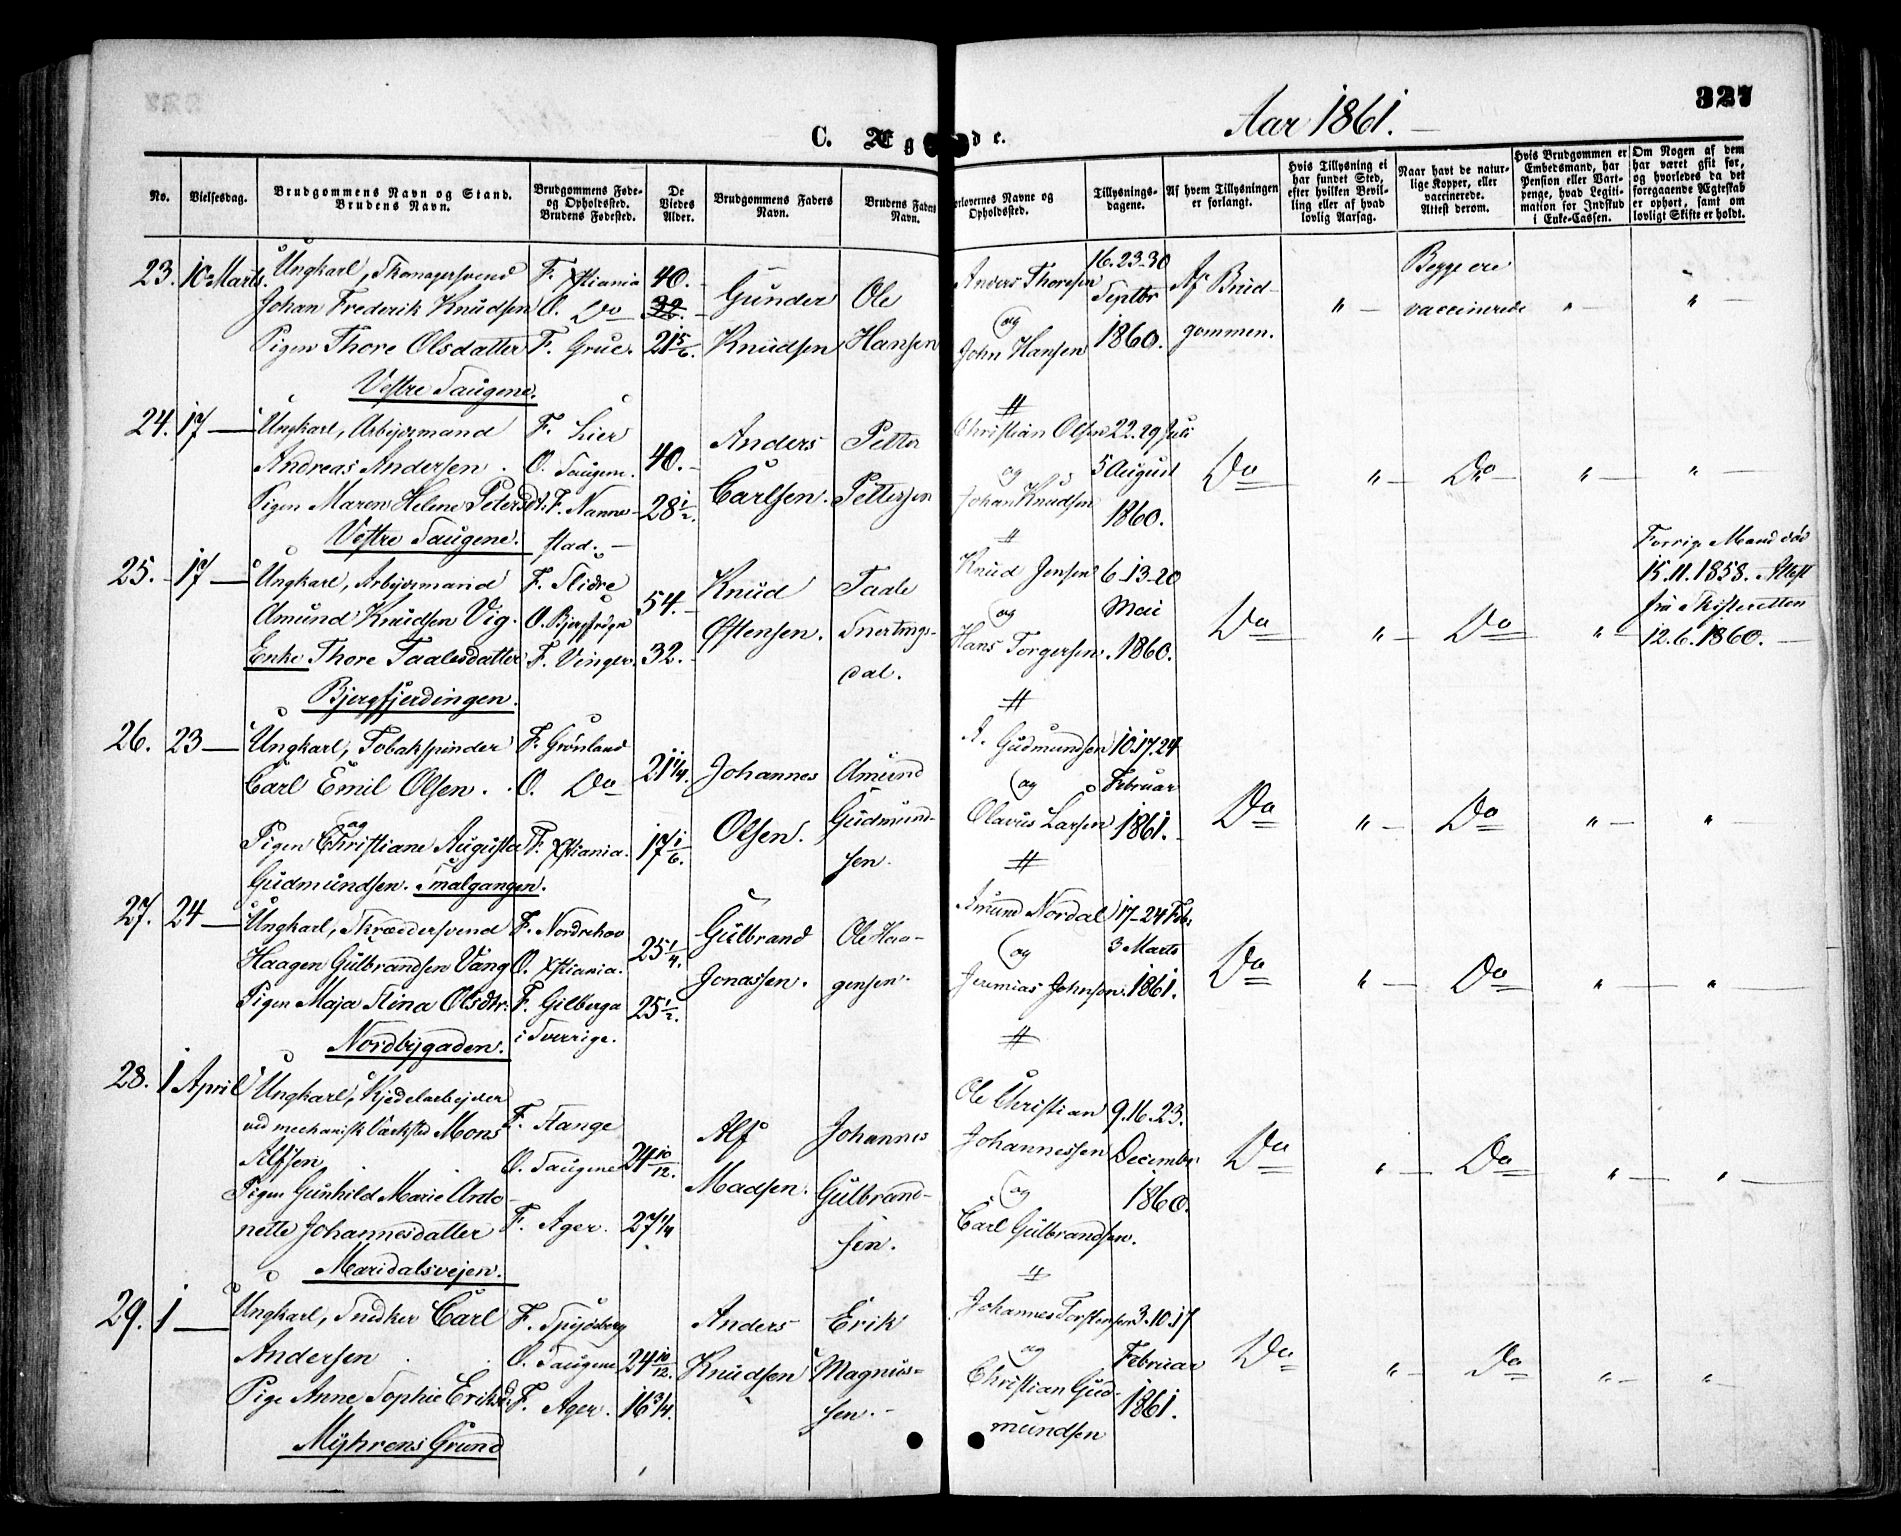 327
Aar 1861.
C. Ægviede.
No.
Vielsesdag.
Brudgommens Navn og Stand.
Brudens Navn.
Brudgommens Føde-
og Opholdssted.
Brudens Fødested.
De
Viedes
Alder.
Brudgommens Faders
Navn.
Brudens Faders
Navn.
Forlovernes Navne og
Opholdssted.
Tillysnings-
dagene.
Af hvem Tillysningen
er forlangt.
Hvis Tillysning ei
har fundet Sted,
efter hvilken Bevil-
ling eller af hvad
lovlig Aarsag.
Naar havt de natur-
lige Kopper, eller
vaccinerede.
Attest derom.
Hvis Brudgommen er
Embedsmand, har
Pension eller Vart-
penge, hvad Legiti-
mation for Indskud
i Enke-Cassen.
Om Nogen af dem
har været gift før,
og hvorledes da det
foregaaende Ægteskab
er ophørt, samt om
lovligt Skifte er holdt.
23. 10 Marts. Ungkarl, Skomagersvend
Johan Frederik Knudsen
Pigen Thore Olsdatter
Vestre Saugene.
F. Xstiania
O. Do
F. Grue.
40.
32.
21 5/6.
Gunder
Knudsen
Ole
Hansen
Anders Thoresen
og
John Hansen
16. 23-30
Septbr
1860.
Af Brud-
gommen.
" Begge ere
vaccinerede " "
24. 17 — Ungkarl, Arbeidsmand
Andreas Andersen.
Pigen Maren Helene Petersdt.
Vestre Saugene.
F. Lier
O. Saugene.
F. Nanne-
stad.
40.
28 1/2.
Anders
Carlsen.
Petter
Pettersen
Christian Olsen
og
Johan Knudsen
22. 29 Juli
5 August
1860.
Do " Do " "
25. 17 — Ungkarl, Arbeidsmand
Amund Knudsen Vig.
Enke Thore Taalesdatter
Bjergfjerdingen.
F. Slidre
O. Bjergfjrdgn
F. Vinger.
54.
32.
Knud
Østensen.
Taale
Snertings-
dal.
Knud Jensen
og
Hans Torgersen.
6-13-20
Mai
1860.
Do " Do "
Forrige Mand død
15.11.1858. Attest
fra Skifteretten
12.6.1860.
26. 23 — Ungkarl, Tobakspinder
Carl Emil Olsen.
og
Pigen Christiane Augusta
Gudmundsen. Smalgangen.
F. Grønland
O. Do
F. Xstiania.
21 1/4.
17 1/6.
Johannes
Olsen.
Amund
Gudmund-
sen.
A. Gudmundsen
og
Olavus Larsen
10.17.24
Februar
1861.
Do " Do " "
27. 24 — Ungkarl, Skræddersvend
Haagen Gulbrandsen Vang
Pigen Maja Stina Olsdtr.
Nordbygaden.
F. Nordrehov
O. Xstiania.
F. Gilberga
i Sverrige.
25 1/4.
25 1/2.
Gulbrand
Jonassen.
Ole Haa-
gensen.
Amund Nordal
og
Jeremias Johnsen.
17-24 Feb.
3 Marts
1861.
Do " Do " "
28. 1 April Ungkarl, Kjedelarbeider
ved mechanisk Værksted Mons
Alfsen
Pigen Gunhild Marie Anto-
nette Johannesdatter
Maridalsvejen.
F. Stange
O. Saugene
F. Ager.
24 10/12.
27 1/4
Alf
Madsen.
Johannes
Gulbrand-
sen.
Ole Christian
Johannessen
og
Carl Gulbrandsen.
9.16.23.
Decembr
1860.
Do " Do " "
29. 1 — Ungkarl, Snedker Carl
Andersen
Pige Anne Sophie Eriksd.
Myhrens Grund
F. Spydeberg
O. Saugene
F. Ager.
24 10/12.
16 3/4.
Anders
Knudsen
Erik
Magnus-
sen.
Johannes Torstensen
og
Christian Gud-
mundsen
3.10.17
Februar
1861.
Do " Do " "